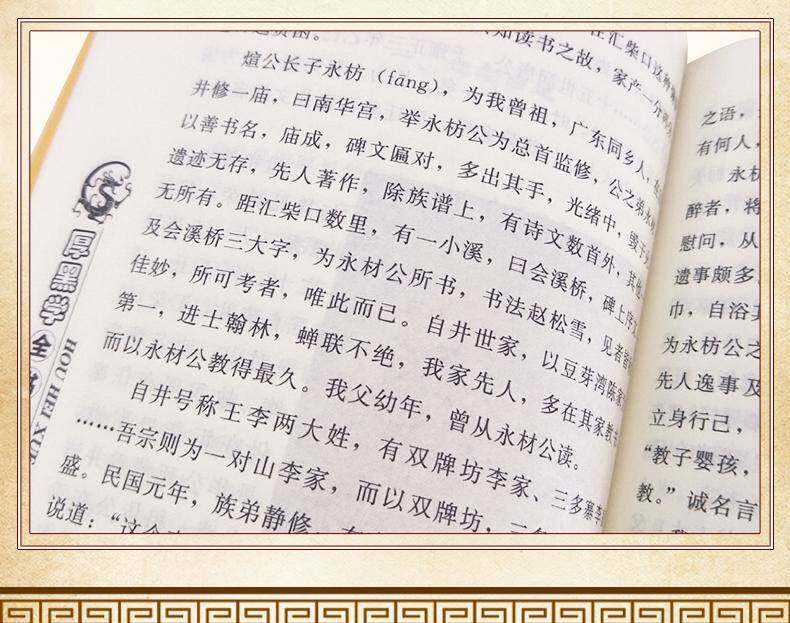 知读书之故，家产一分
煊公长子永枋（fāng），为我曾祖，广东同乡人，
井修一庙，曰南华宫，举永枋公为总首监修，公之弟永
以善书名，庙成，碑文匾对，多出其手，光绪中，毁于
遗迹无存，先人著作，除族谱上，有诗文数首外，其他
无所有。距汇柴口数里，有一小溪，曰会溪桥，碑上序
及会溪桥三大字，为永材公所书，书法赵松雪，见者皆
佳妙，所可考者，唯此而已。自井世家，以豆芽湾陈家
第一，进士翰林，蝉联不绝，我家先人，多在其家教
而以永材公教得最久。我父幼年，曾从永材公读。
自井号称王李两大姓，有双牌坊李家、三多寨李
……吾宗则为一对山李家，而以双牌坊、三
盛。民国元年，族弟静修，在
说道：“这个
厚黑学
全书
HOU HEI XUE
之语，
有何人，
永枋
醉者，将
慰问，从
遗事颇多
巾，自浴其
为永枋公之
先人逸事及
立身行己，
“教子婴孩，
教。”诚名言